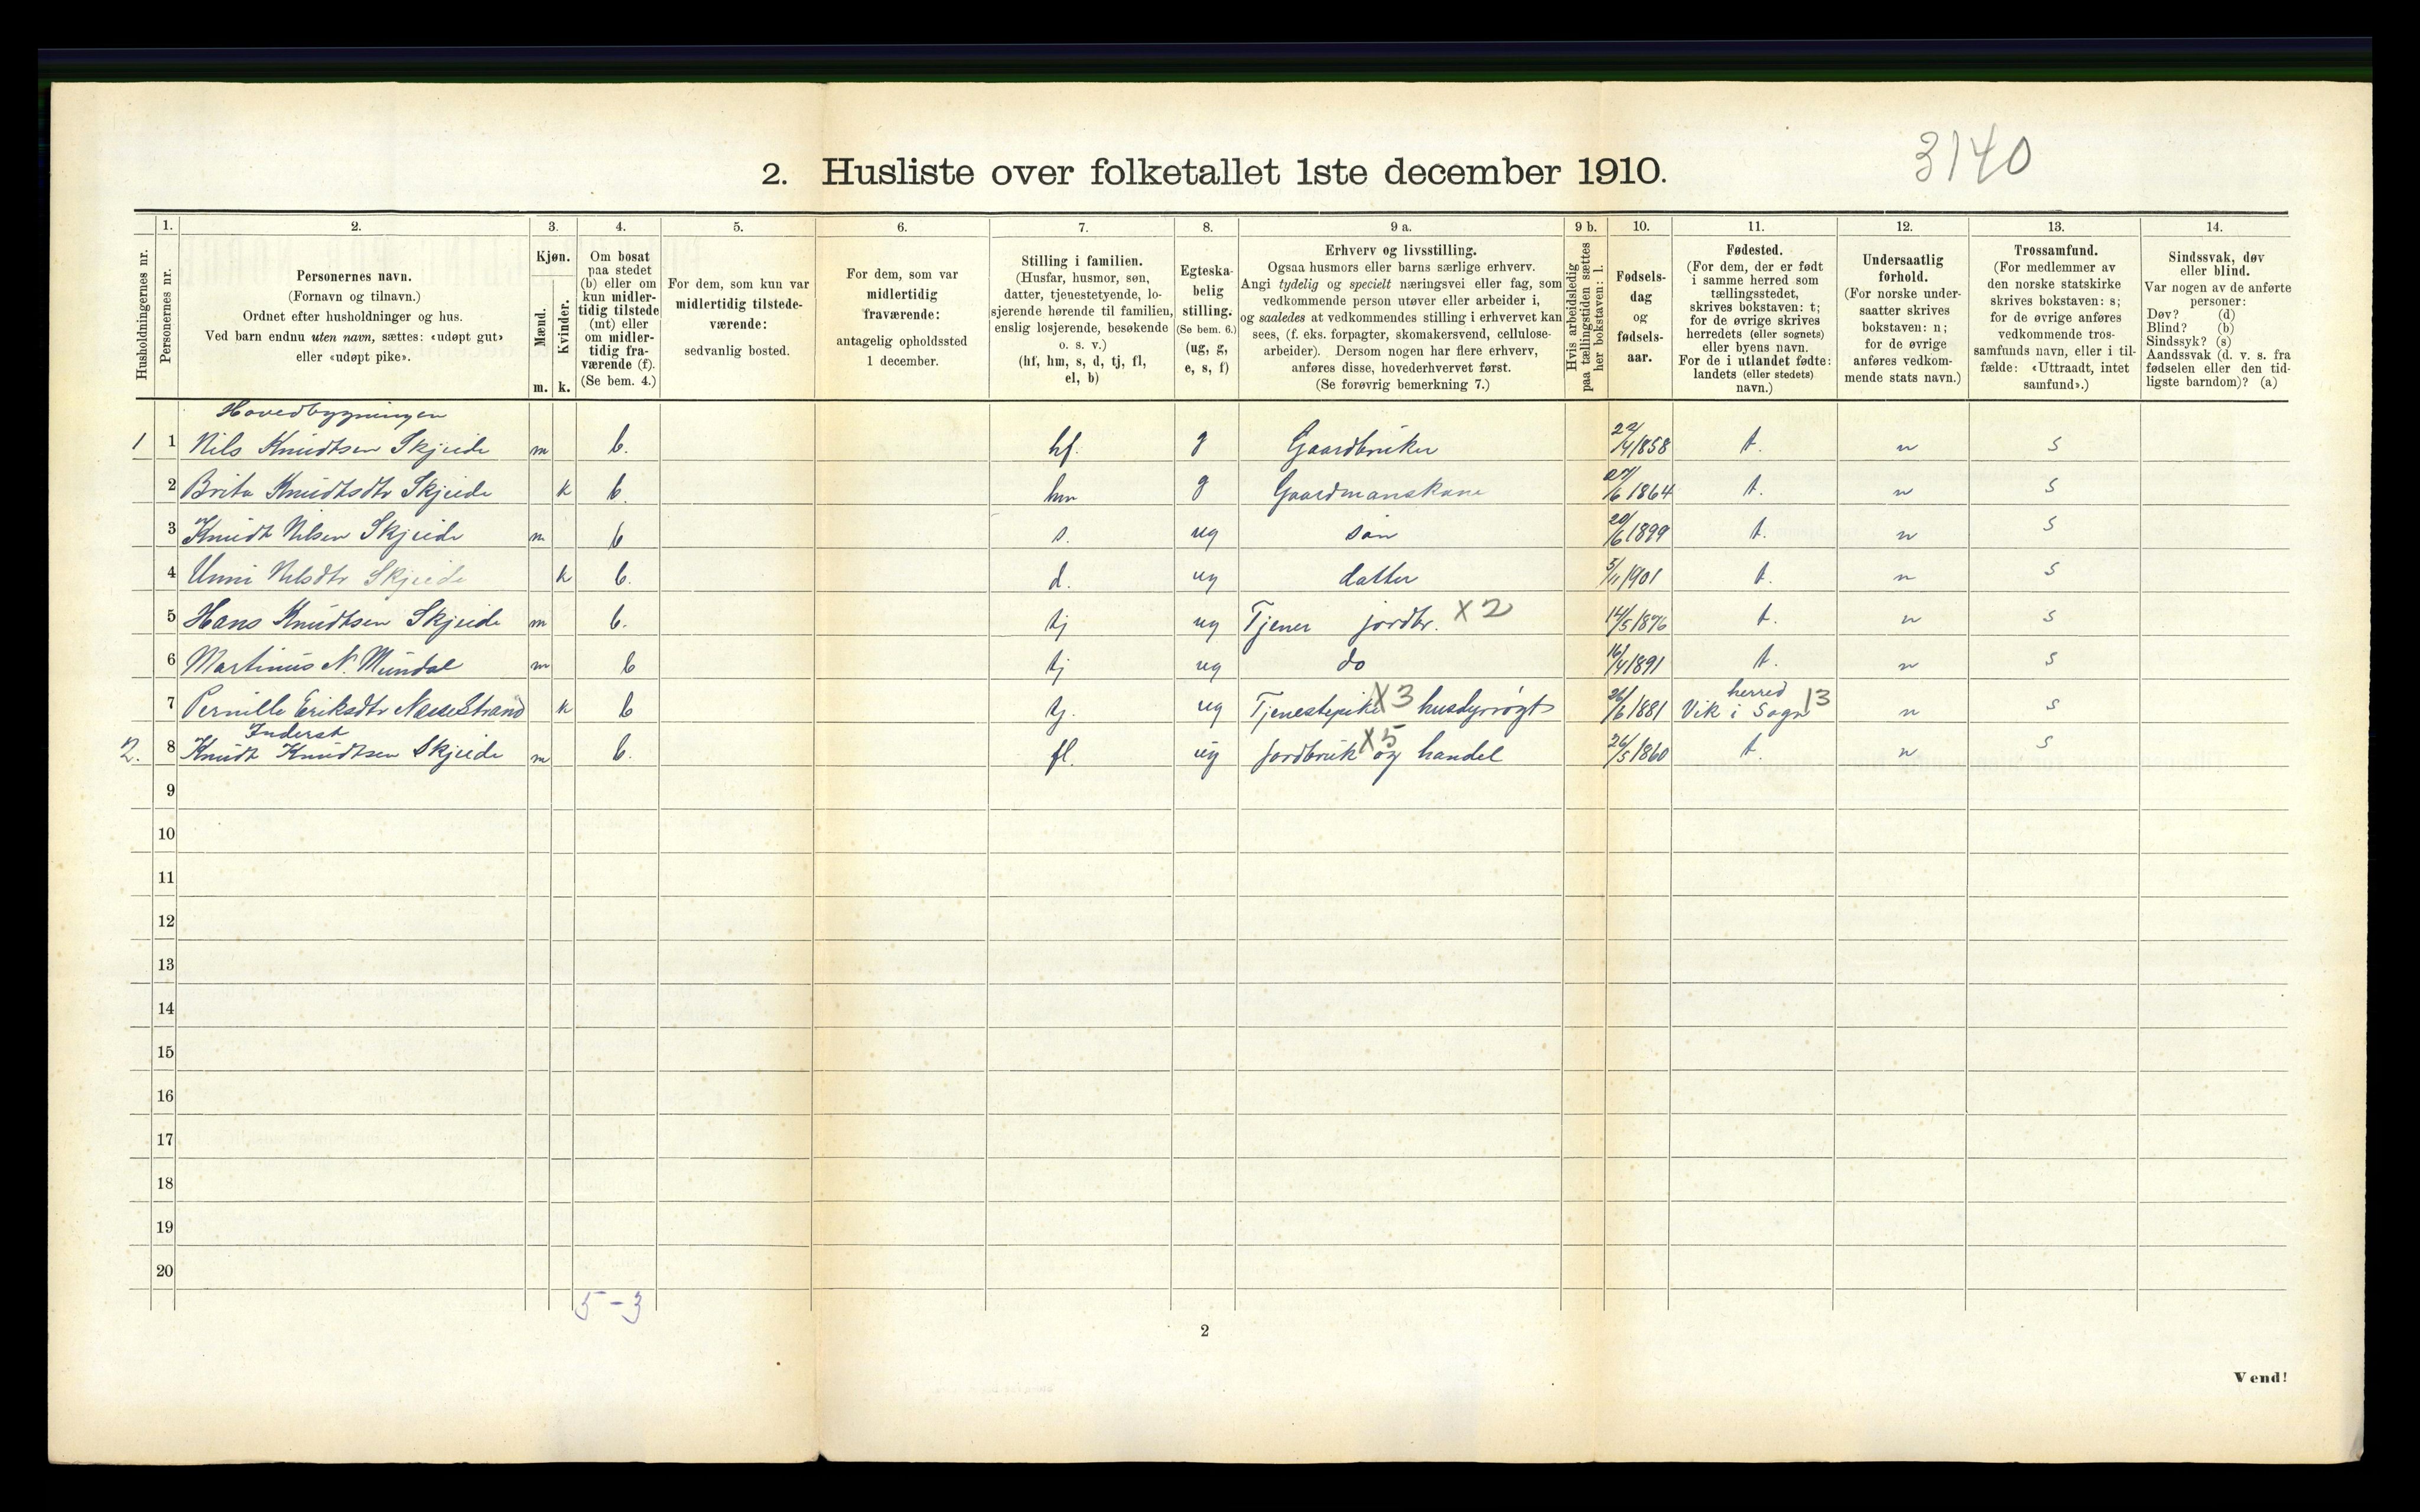 3140
2. Husliste over folketallet 1ste december 1910.
Husholdningernes nr.
1.
Personernes nr.
2.
Personernes navn.
(Fornavn og tilnavn.)
Ordnet efter husholdninger og hus.
Ved barn endnu uten navn, sættes: «udøpt gut»
eller «udøpt pike».
3.
Kjøn.
Mænd.
Kvinder.
m.
k.
4.
Om bosat
paa stedet
(b) eller om
kun midler-
tidig tilstede
(mt) eller
om midler-
tidig fra-
værende (f).
(Se bem. 4.)
5.
For dem, som kun var
midlertidig tilstede-
værende:
sedvanlig bosted.
6.
For dem, som var
midlertidig
fraværende:
antagelig opholdssted
1 december.
7.
Stilling i familien.
(Husfar, husmor, søn,
datter, tjenestetyende, lo-
sjerende hørende til familien,
enslig losjerende, besøkende
o. s. v.)
(hf, hm, s, d, tj, fl,
el, b)
8.
Egteska-
belig
stilling.
(Se bem. 6.)
(ug, g,
e, s, f)
9 a.
Erhverv og livsstilling.
Ogsaa husmors eller barns særlige erhverv.
Angi tydelig og specielt næringsvei eller fag, som
vedkommende person utøver eller arbeider i,
og saaledes at vedkommendes stilling i erhvervet kan
sees, (f. eks. forpagter, skomakersvend, cellulose-
arbeider). Dersom nogen har flere erhverv,
anføres disse, hovederhvervet først.
(Se forøvrig bemerkning 7.)
9 b.
Hvis arbeidsledig
paa tællingstiden sættes
her bokstaven: l.
10.
Fødsels-
dag
og
fødsels-
aar.
11.
Fødested.
(For dem, der er født
i samme herred som
tællingsstedet,
skrives bokstaven: t;
for de øvrige skrives
herredets (eller sognets)
eller byens navn.
For de i utlandet fødte:
landets (eller stedets)
navn.)
12.
Undersaatlig
forhold.
(For norske under-
saatter skrives
bokstaven: n;
for de øvrige
anføres vedkom-
mende stats navn.)
13.
Trossamfund.
(For medlemmer av
den norske statskirke
skrives bokstaven: s;
for de øvrige anføres
vedkommende tros-
samfunds navn, eller i til-
fælde: «Uttraadt, intet
samfund».)
14.
Sindssvak, døv
eller blind.
Var nogen av de anførte
personer:
Døv? (d)
Blind? (b)
Sindssyk? (s)
Aandssvak (d. v. s. fra
fødselen eller den tid-
ligste barndom)? (a)
Hovedbygningen
1 1 Nils Knudtsen Skjeide m b. hf. g Gaardbruker 22/4 1858 t. n s
2 Brita Knudtsdtr Skjeide k b. hm g Gaardmanskone 27/6 1864 t. n s
3 Knudt Nilsen Skjeide m b s. ug søn 20/6 1899 t. n s
4 Unni Nilsdtr Skjeide k b. d. ug datter 5/11 1901 t. n s
5 Hans Knudtsen Skjeide m b. tj ug Tjener jordbr. X 2 14/5 1876 t. n s
6 Martinus N. Mundal m b tj ug do 16/4 1891 t. n s
7 Pernille Eriksdtr Nessestrand k b tj. ug Tjenestepike X3 husdyrrøgt 26/6 1881 Vik i Sogn herred 13 n s
Inderst
2. 8 Knudt Knudtsen Skjeide m b. fl. ug Jordbruk X5 og handel 26/5 1860 t. n s
9
10
11
12
13
14
15
16
17
18
19
20
5-3
2
Vend!